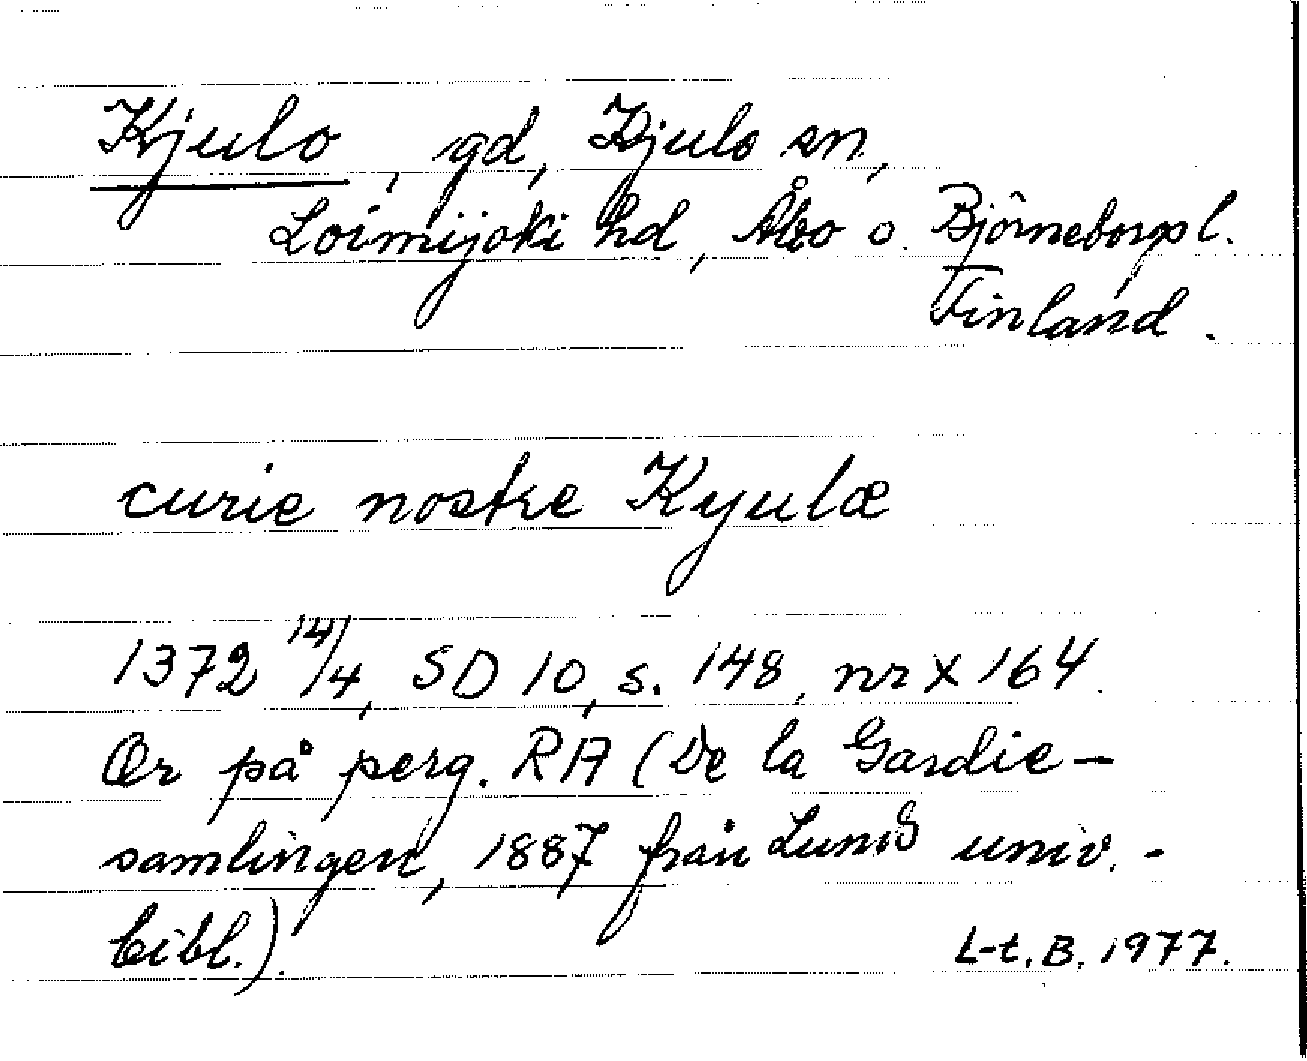 Kjulo, gd, Kjulo sn,
Loimijoki hd, Åbo o. Björneborgs l.
Finland.
curie nostre Kyulæ
1372 14/4, SD 10, s. 148, nr X 164.
Or på perg. RA (De la Gardie-
samlingen, 1887 från Lunds univ.-
bibl.).
L-t. B. 1977.